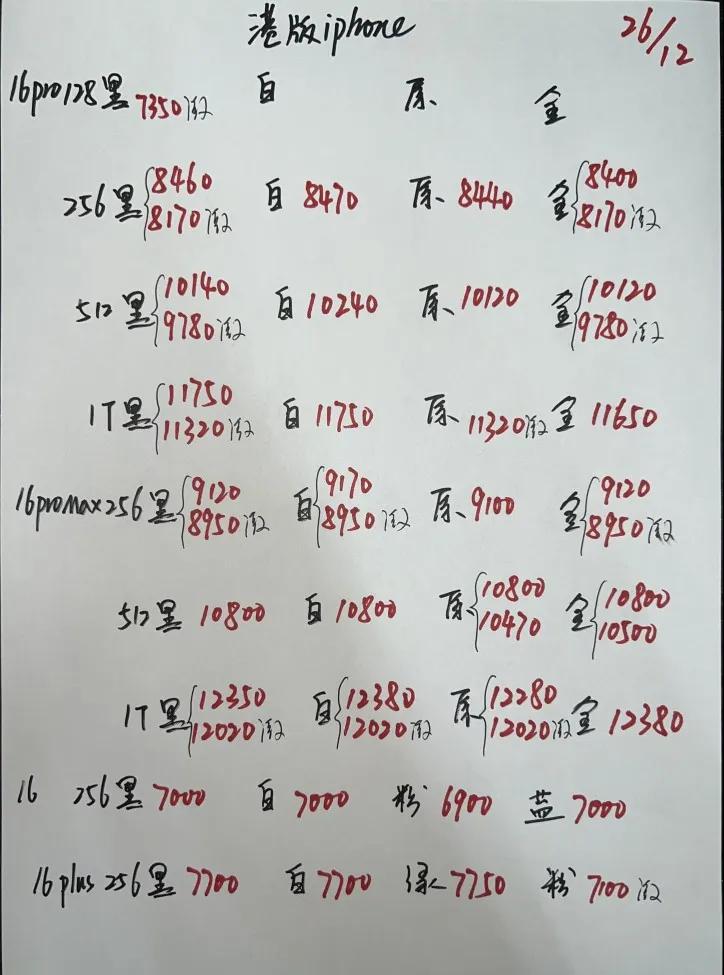 港版iphone 26/12
16pro128黑 7350激 白 原、 金
256黑 8460 8170激 白 8470 原、8440 金 8400 8170激
512黑 10140 9780激 白 10240 原、10120 金 10120 9780激
1T黑 11750 11320激 白 11750 原、11320激 金 11650
16promax256黑 9120 8950激 白 9170 8950激 原、9100 金 9120 8950激
512黑 10800 白 10800 原、10800 10470 金 10800 10500
1T黑 12350 12020激 白 12380 12020激 原 12280 12020激 金 12380
16 256黑 7000 白 7000 粉 6900 蓝 7000
16plus 256黑 7700 白 7700 绿 7750 粉 7100激